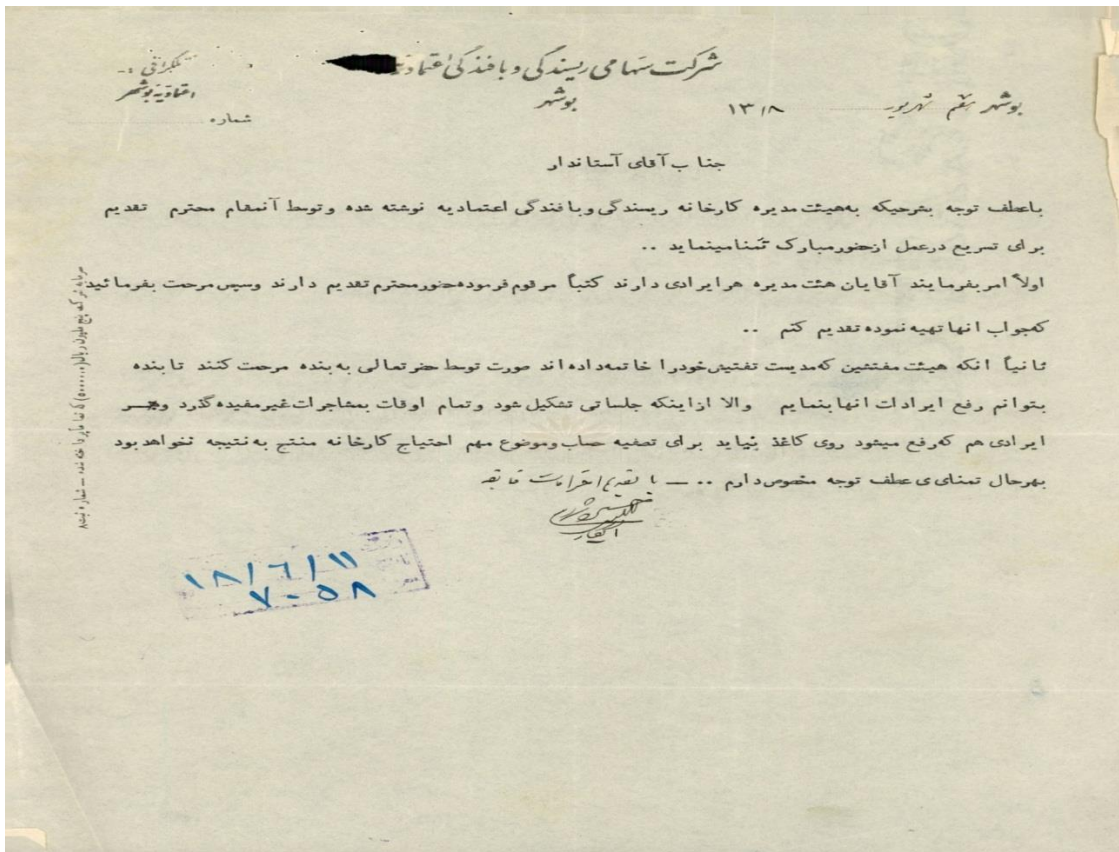 شرکت سهامی ریسندگی و بافندگی اعتمادیه
بوشهر
تلگرافی :-
اعتمادیه بوشهر
شماره
بوشهر شهریور ۱۳۱۸
جناب آقای آستاندار
باعطف توجه بشرحیکه بههیئت مدیره کارخانه ریسندگی وبافندگی اعتمادیه نوشته شده وتوسط آنمقام محترم تقدیم
برای تسریع درعمل ازحضورمبارک تمنامینماید ..
اولاً امربفرمایند آقایان هئت مدیره هرایرادی دارند کتباً مرقوم فرموده حضورمحترم تقدیم دارند وسپس مرحمت بفرمائید
کهجواب انهاتهیه نموده تقدیم کنم ..
ثانیاً انکه هیئت مفتشین کهمدیست تفتیش خودرا خاتمه داده اند صورت توسط حضرتعالی به بنده مرحمت کنند تابنده
بتوانم رفع ایرادات انهابنمایم والا ازاینکه جلساتی تشکیل شود وتمام اوقات بمشاجرات غیرمفیده گذرد وهر
ایرادی هم که رفع میشود روی کاغذ نیاید برای تصفیه حساب وموضوع مهم احتیاج کارخانه منتج به نتیجه نخواهد بود
بهرحال تمنای ی عطف توجه مخصوص دارم .. — با تقدیم احترامات فائقه
سرمایه شرکت پنج ملیون ریال (۵۰۰۰۰۰۰) که تماماً پرداخته شده — شماره ثبت ۸
۱۸/٦/۱۱
۷۰۵۸